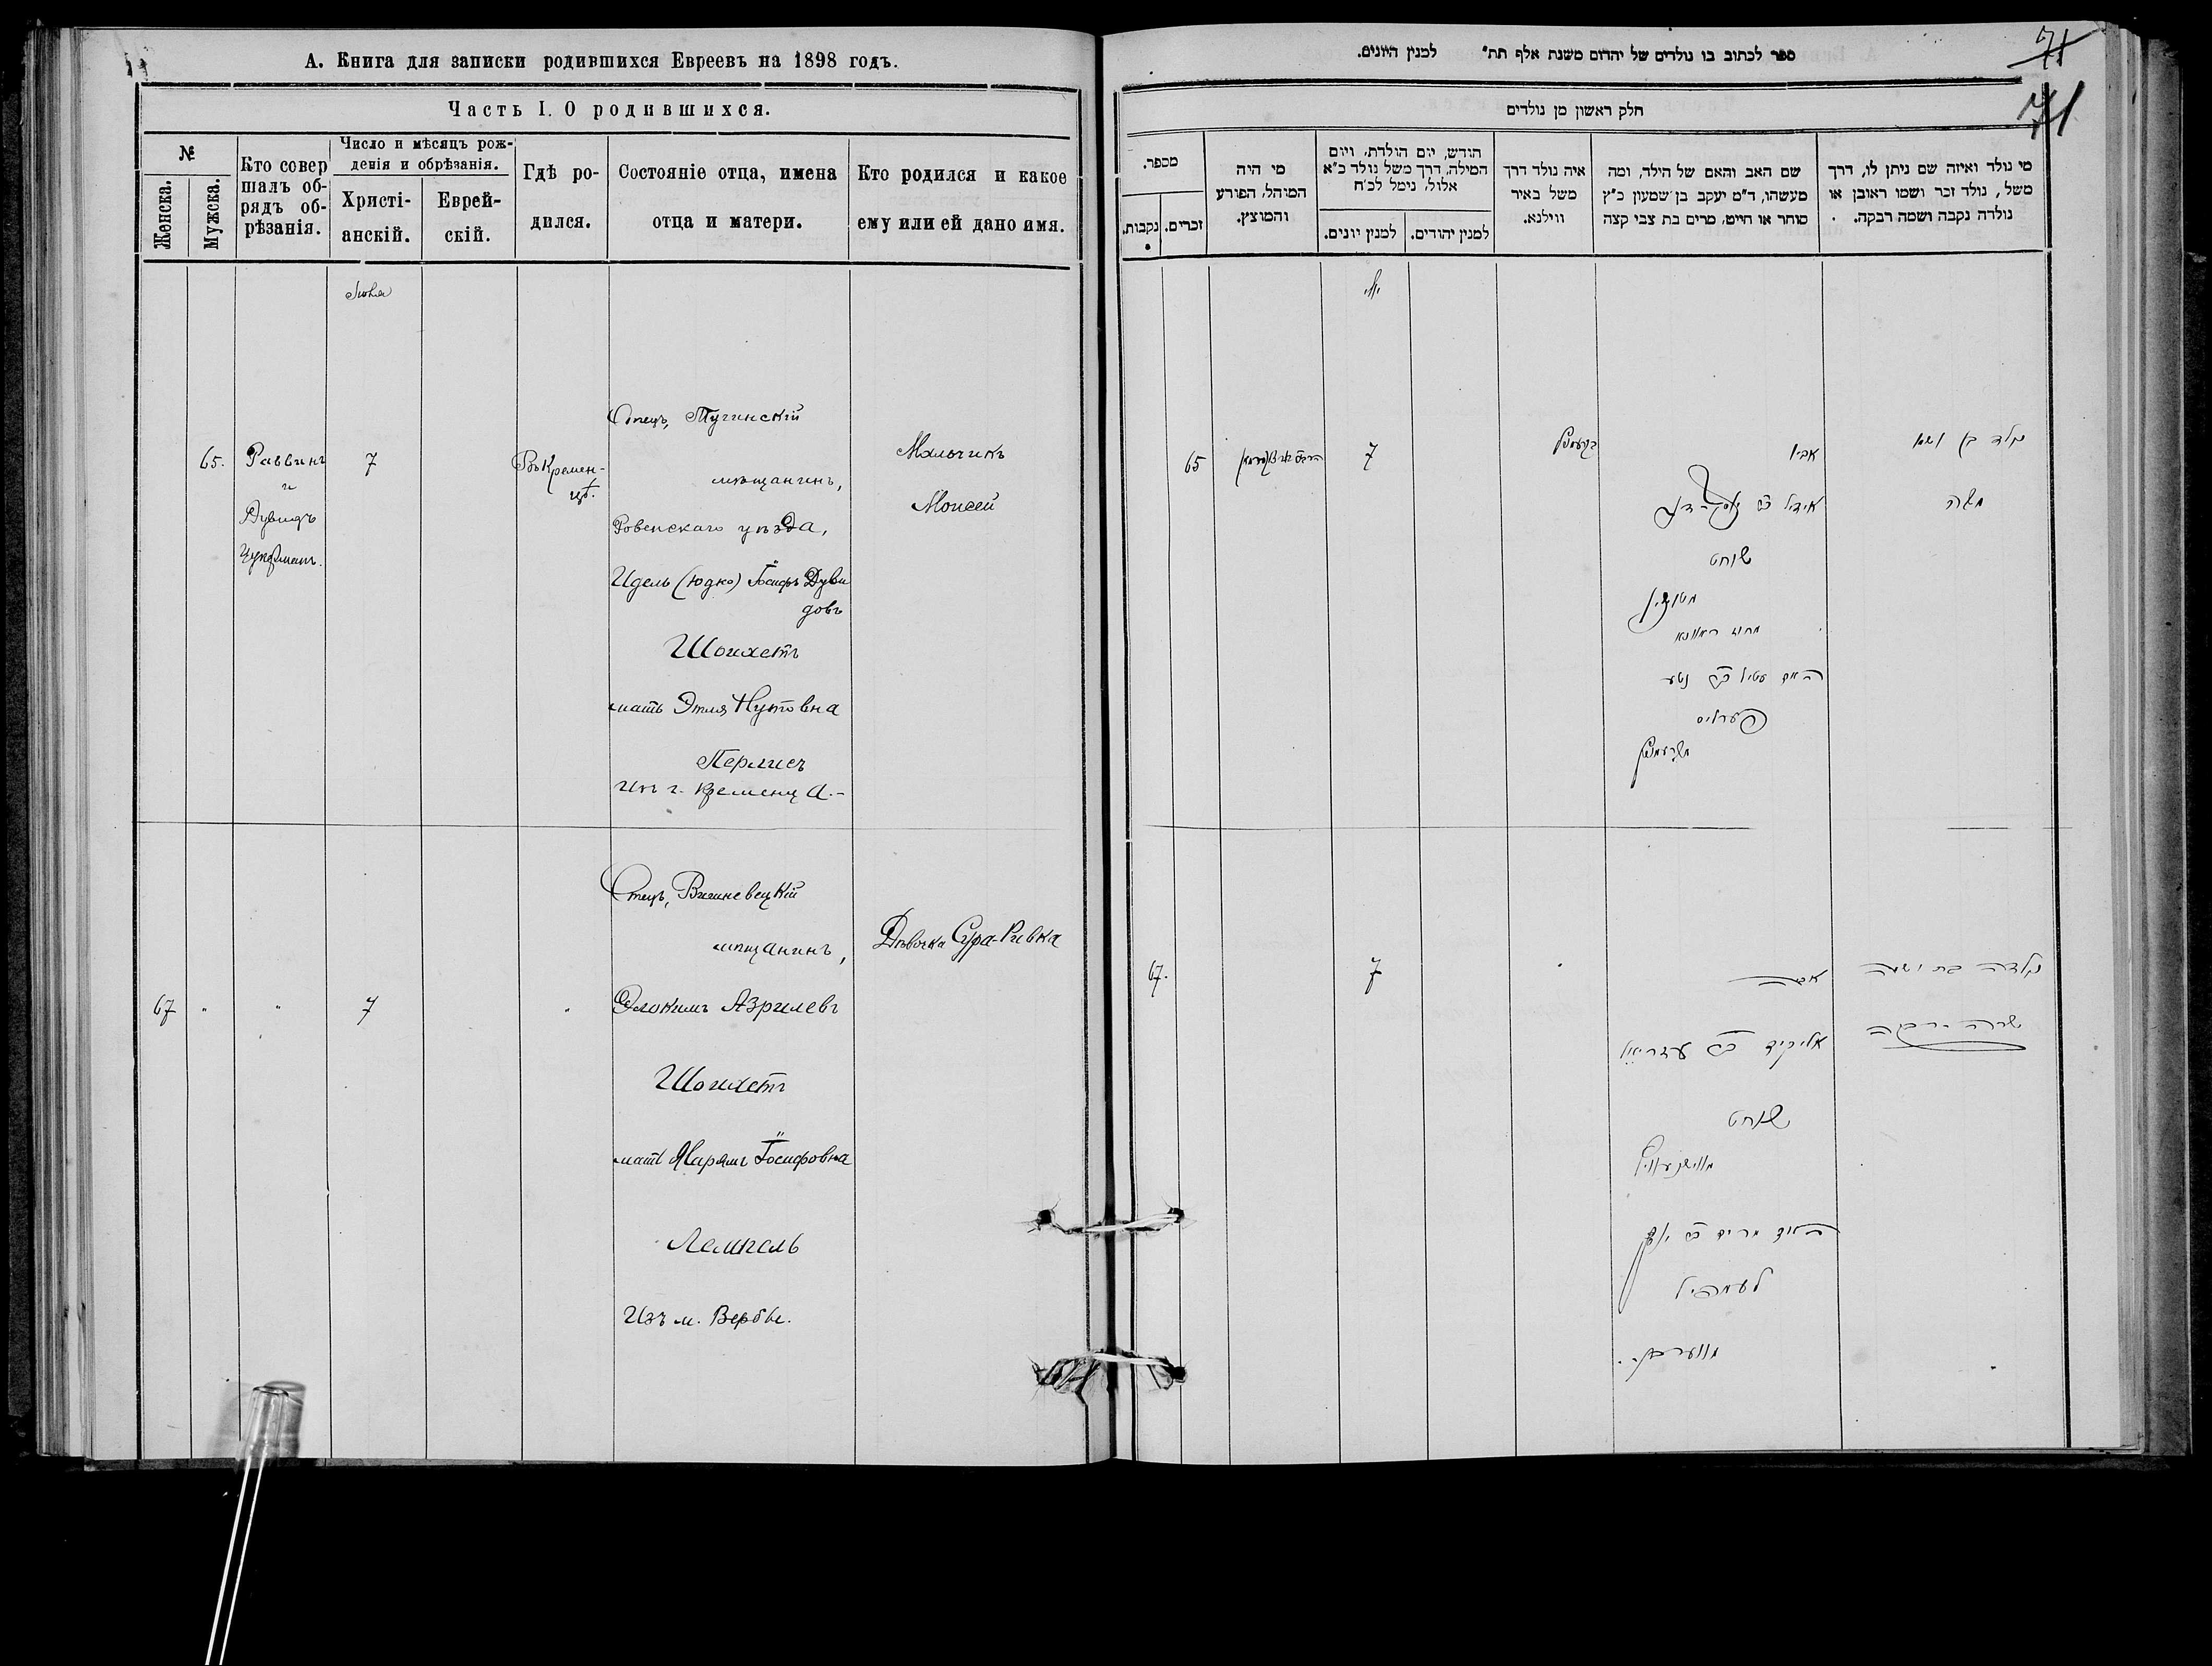 А. Книга для записки родившихся Евреевъ на 1898 годъ.
Часть I. О родившихся.
№
Женска.
Мужска.
Кто совер
шалъ об-
рядъ об-
рѣзанія.
Число и мѣсяцъ рож-
денія и обрѣзанія.
Христі-
анскій.
Еврей-
скій.
Гдѣ ро-
дился.
Состояніе отца, имена
отца и матери.
Кто родился и какое
ему или ей дано имя.
65.
Раввинъ
и
Дувидъ
7
Въ Кремен-
цѣ.
Отецъ, Тучинскій
мѣщанинъ,
Ровенскаго уѣзда,
Идель (Юдко) Іосифъ Дуви
довъ
Шоихетъ
мать Этля Нутовна
Перлисъ
изъ г. Кременца.-
Мальчикъ
Моисей
67
"
"
7
"
Отецъ, Вишневецкій
мѣщанинъ,
Элюкимъ Азрилевъ
Шоихетъ
мать Марямъ Іосифовна
Лемпель
Изъ м. Вербы.
Дѣвочка Сура-Ривка
ספר לכתוב בו נולדים של יהדום משנת אלף תת" למנין היונים.
71
71
חלק ראשון מן נולדים
מספר.
נקבות.
זכרים.
מי היה
המוהל, הפורע
והמוצץ.
חודש, יום הולדת, ויום
המילה, דרך משל נולד כ"א
אלול, נימל לכ"ח
למנין יונים.
למנין יהודים.
איה נולד דרך
משל באיר
ווילנא.
שם האב והאם של הילד, ומה
מעשהו, ד"מ יעקב בן שמעון כ"ץ
סוחר או חייט, מרים בת צבי קצה
מי נולד ואיזה שם ניתן לו, דרך
משל, נולד זכר ושמו ראובן או
נולדה נקבה ושמה רבקה.
65
7
אביו
שוחט
מטוטשין
מחוז ראוונא
האם עטיל בת נטע
פערליס
נולד בן ושמו
משה
67.
7
אביה
אליקים בן עזריאל
שוחט
מווישניוויץ
האם מרים בת יוסף
לעמפיל
מווערבא.
נולדה בת ושמה
שרה רבקה